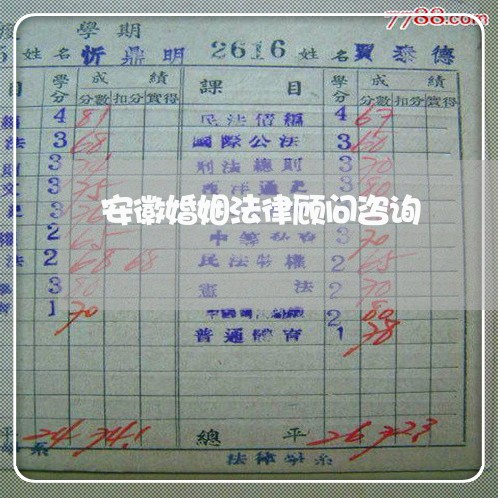 7788.com
學期
姓名 忻鼎明 2616 姓名 賈泰德
目 學分 成績 課目 學分 成績
分數 扣分 實得 分數 扣分 實得
4 81 民法債編 4 67
法 3 68 國際公法 3 60
3 刑法總則 3 70
3 75 西洋通史 3 80
安徽婚姻法律顾问咨询
2 65 3 70
法 2 68 68 民法物權 2 65
3 80 憲法 2 70
1 70 2 80
普通體育 1 78
平 24 74.1 總平 26 72.3
系 法律學系